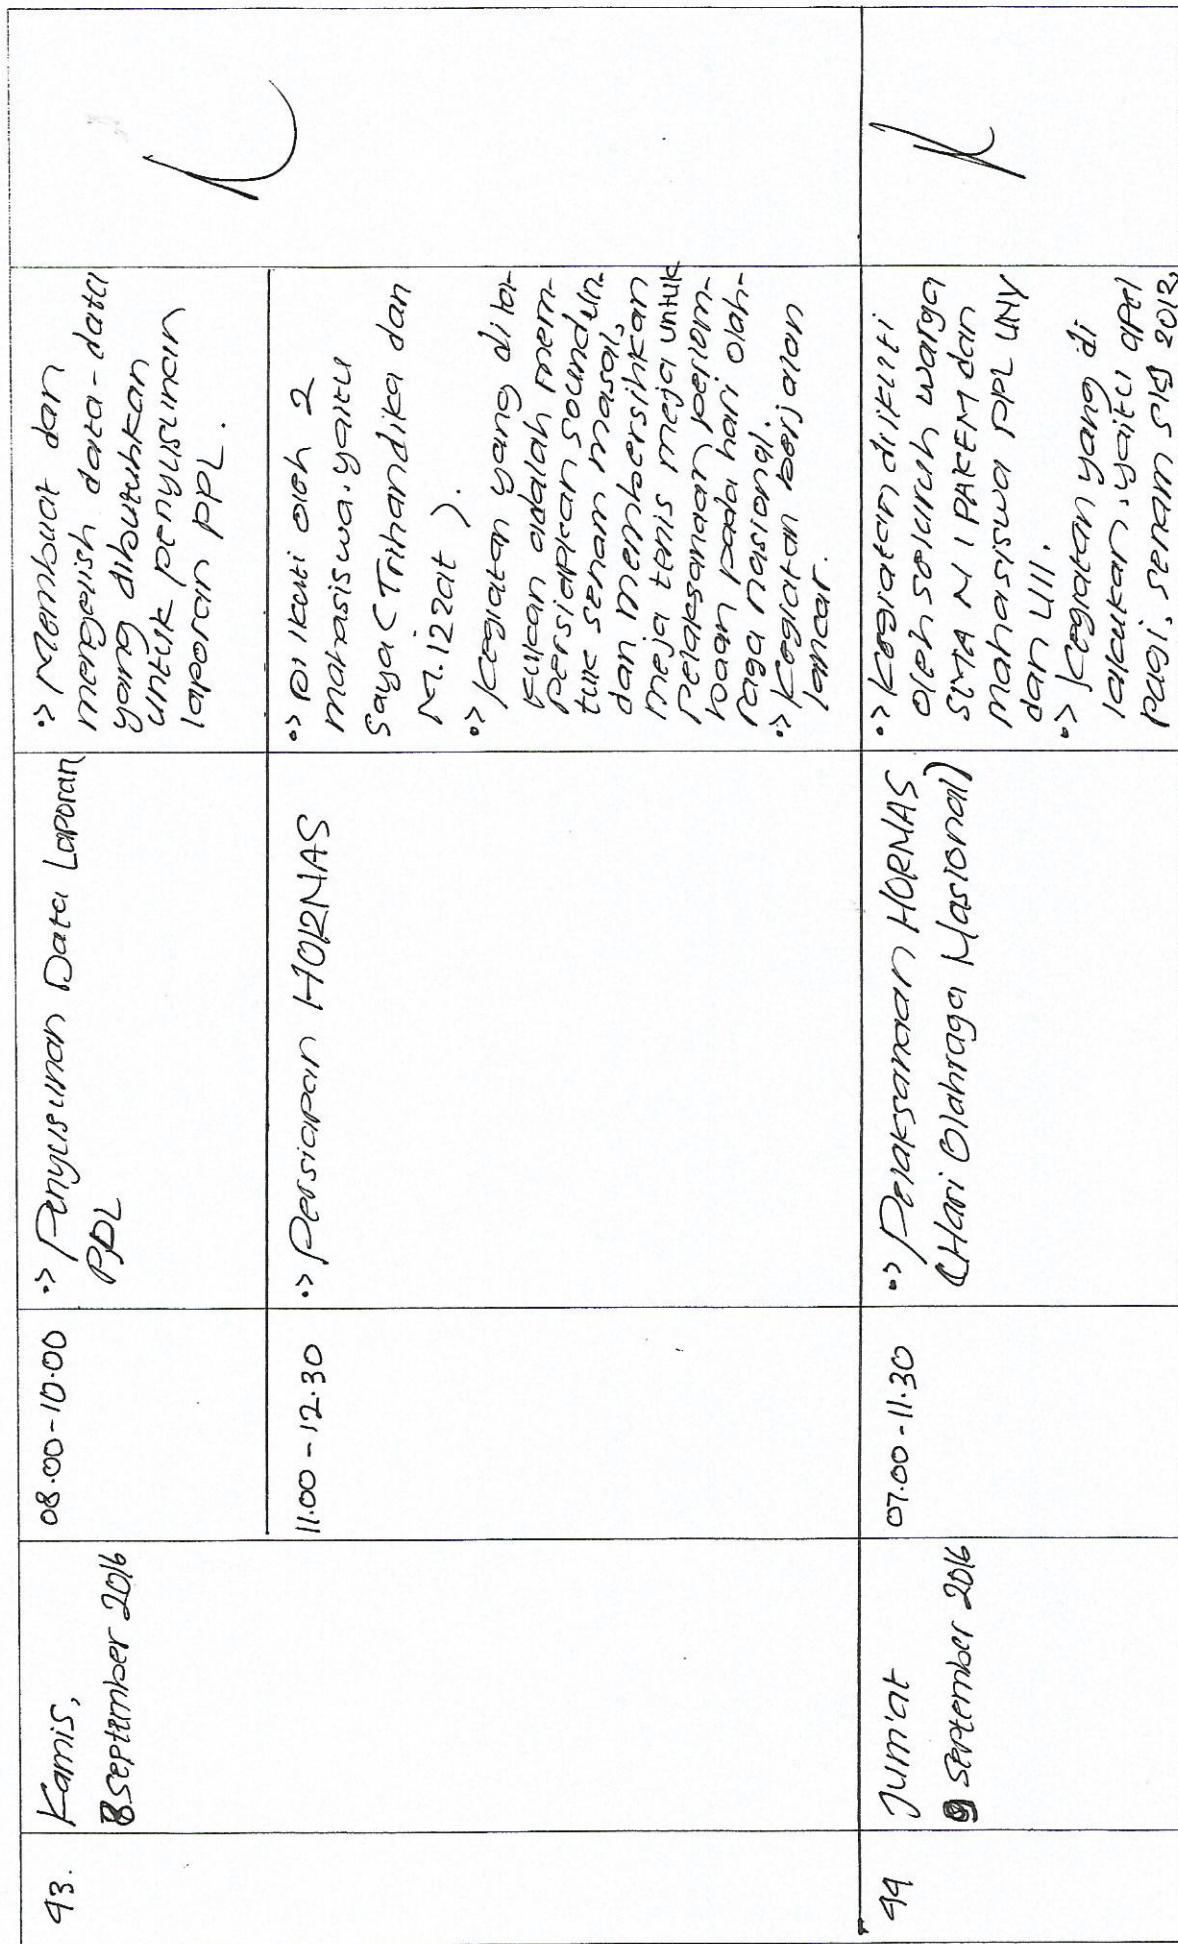 43.
Kamis,
8 September 2016
08.00-10.00
Penyusunan Data Laporan
PPL
Membuat dan
mengolah data-data
yang dibutuhkan
untuk penyusunan
laporan PPL.
11.00-12.30
Persiapan HORNAS
Di ikuti oleh 2
mahasiswa.yaitu
Saya (Trihandika dan
M.izzat ).
Kegiatan yang dilak-
kukan adalah mem-
persiapkan sound un-
tuk senam masal,
dan membersihkan
meja tenis meja untuk
Pelaksanaan perlom-
baan pada hari olah-
raga nasional.
Kegiatan berjalan
lancar.
44
Jum'at
9 September 2016
07.00-11.30
Pelaksanaan HORNAS
(Hari Olahraga Nasional)
Kegiatan diikuti
oleh seluruh warga
SMA N 1 PAKEM dan
mahasiswa PPL UNY
dan UII.
Kegiatan yang di
lakukan, yaitu apel
pagi, senam SKJ 2012,